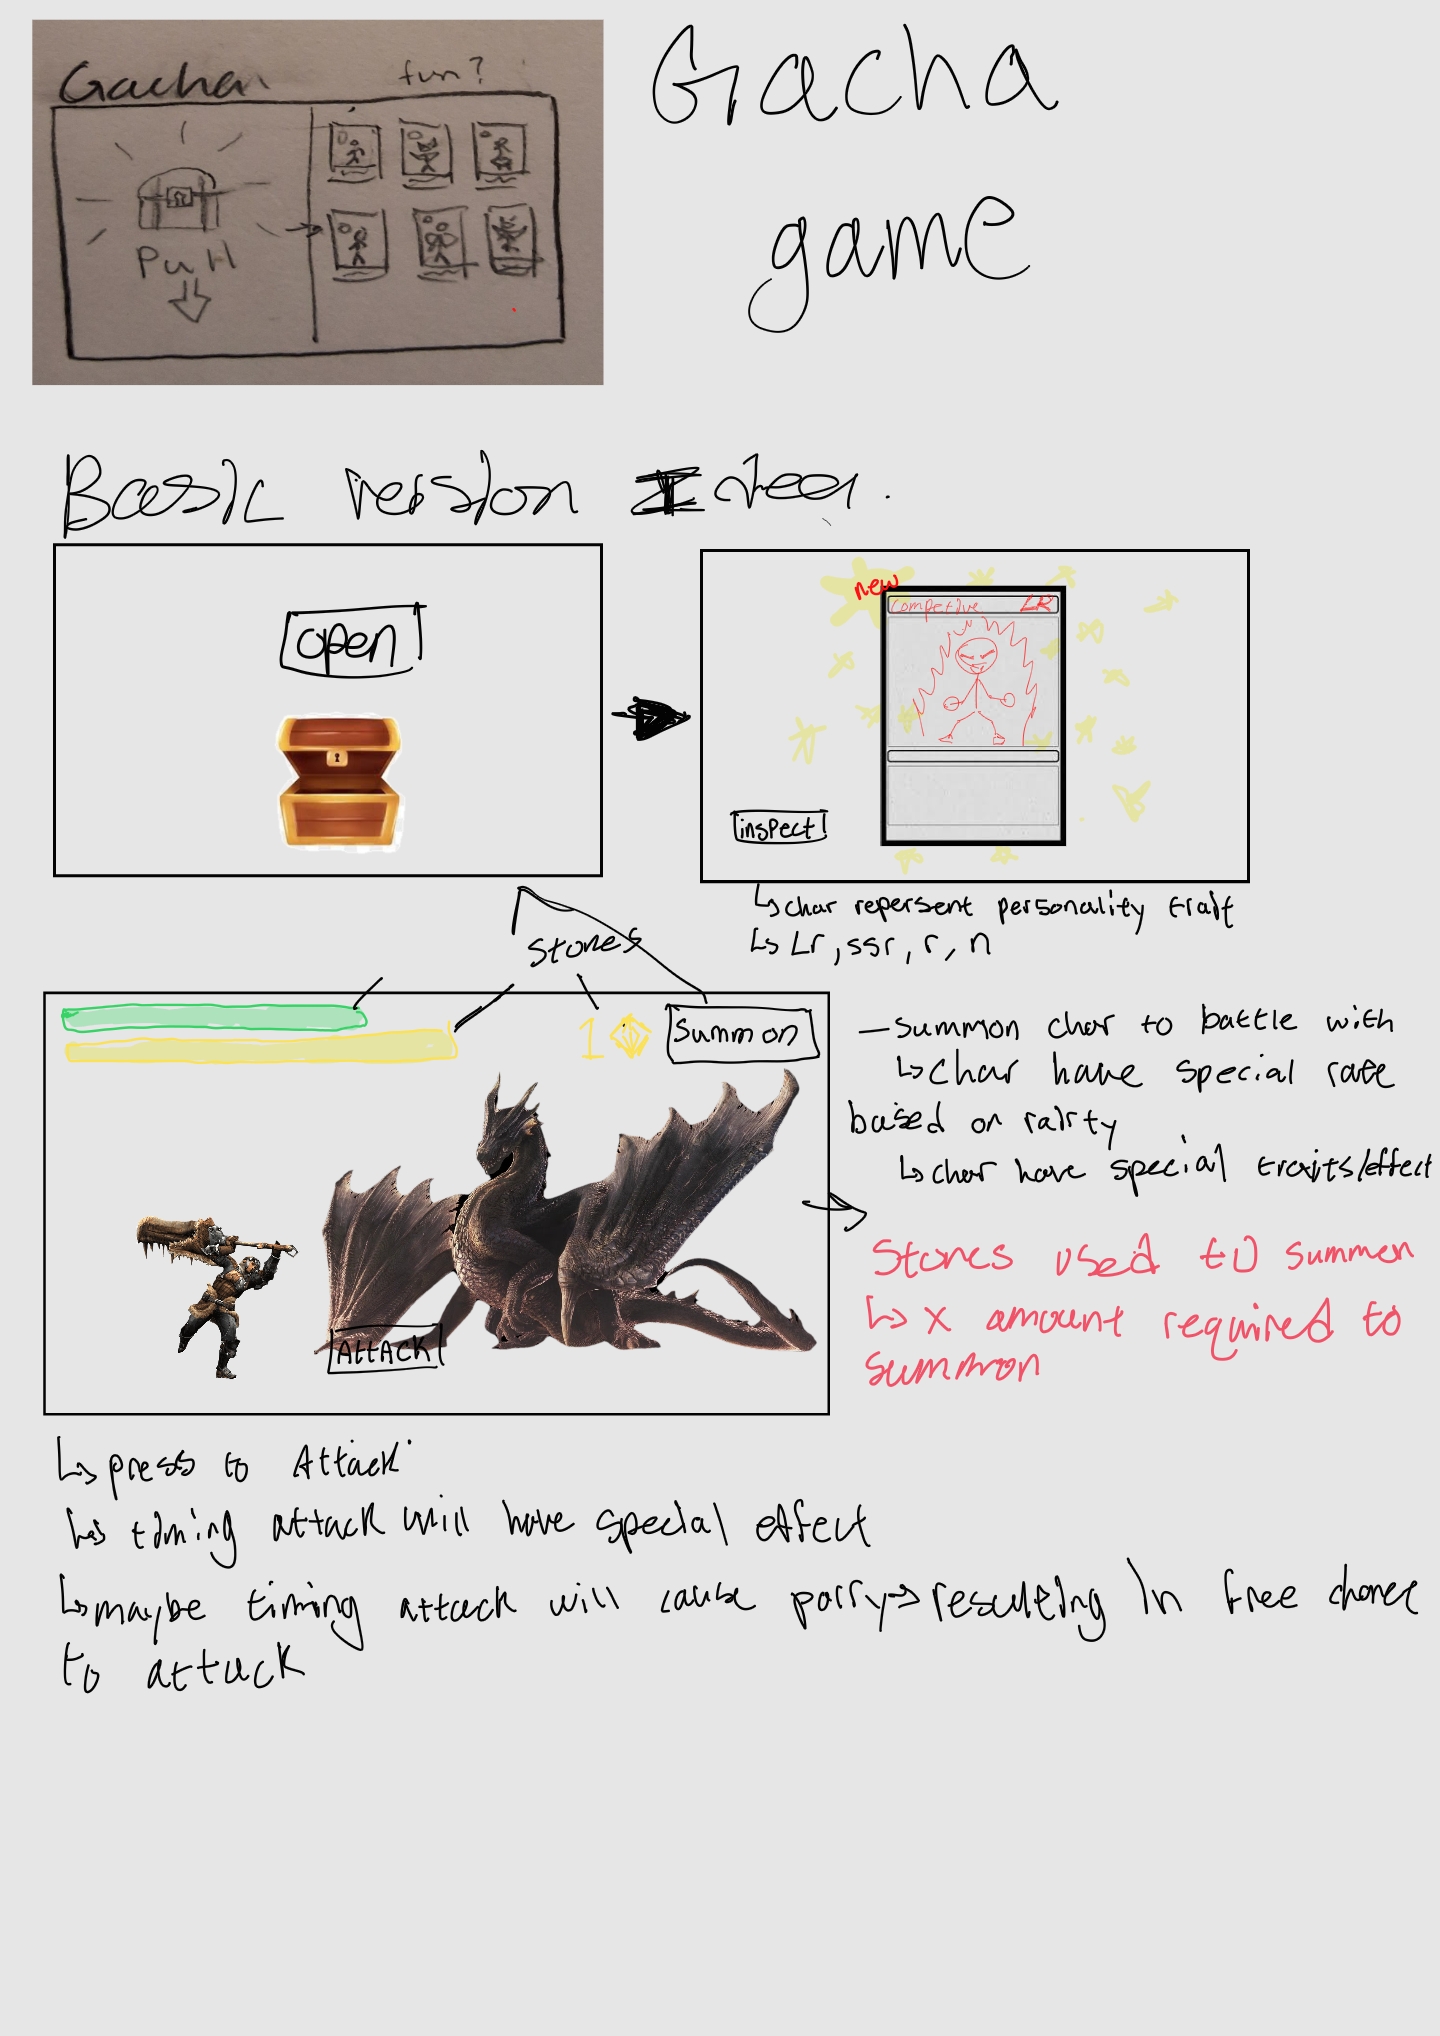 Gacha fun?
Pull
Gacha
game
Basic version Idea.
open
new
Competive LR
inspect
↳ char repersent personality trait
↳ Lr, ssr, r, n
Stones
1
Summon
ATTACK
— summon char to battle with
↳ char have special rate
based on rairty
↳ char have special traits/effect
Stones used to summon
↳ x amount required to
summon
↳ press to Attack
↳ timing attack will have special effect
↳ maybe timing attack will cause parry → resulting in free chance
to attack